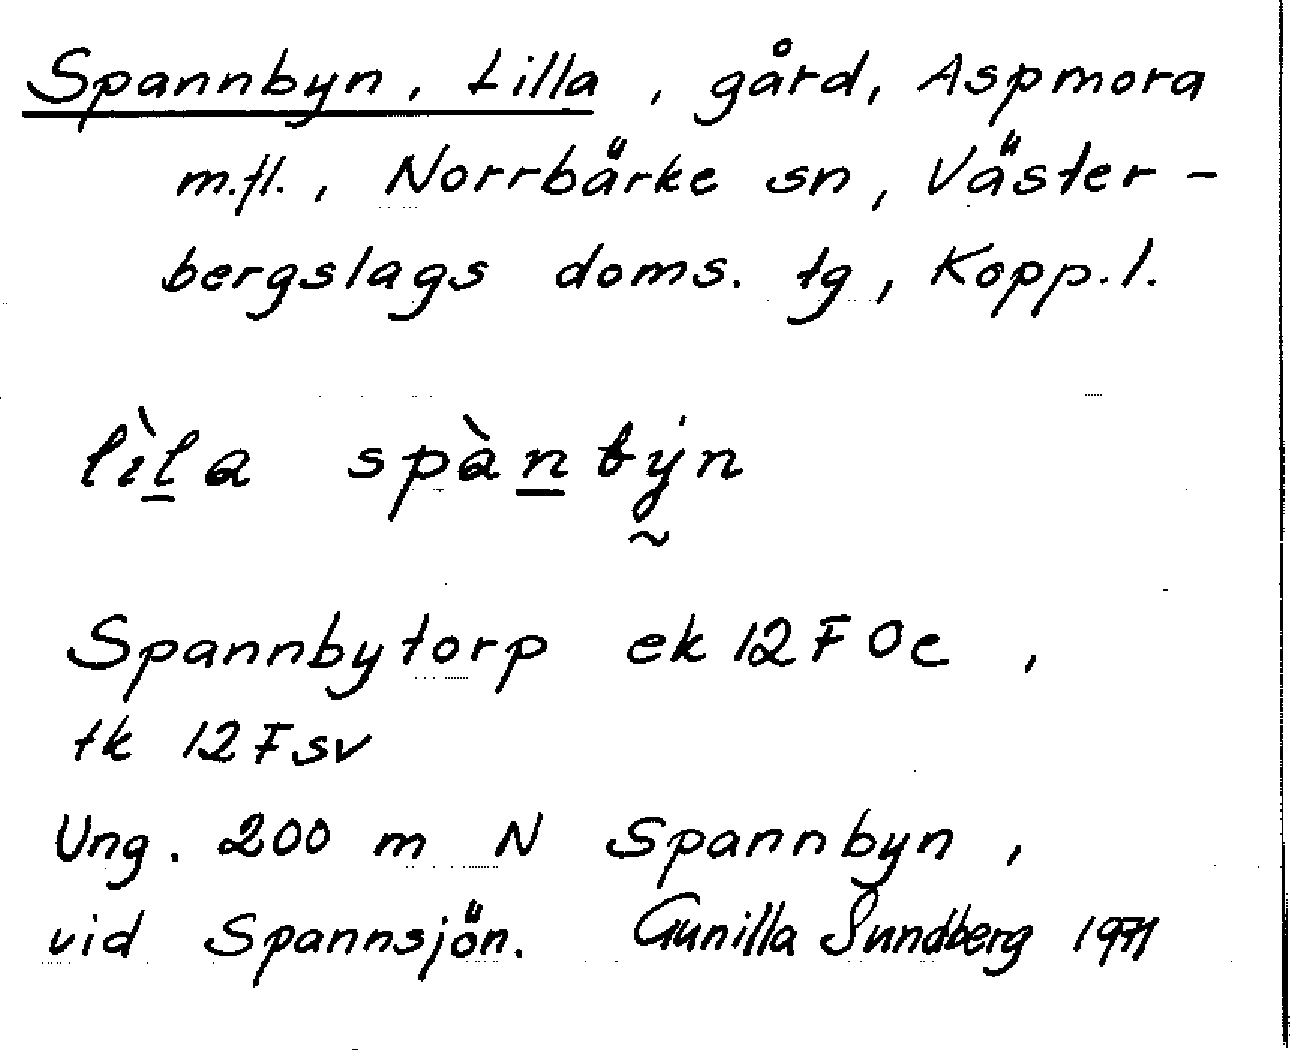 Spannbyn, Lilla, gård, Aspmora
m.fl., Norrbärke sn, Väster-
bergslags doms. tg, Kopp.l.
lìl̲a spàn̲bẏ̰n
Spannbytorp ek 12F 0e,
tk 12Fsv
Ung. 200 m N Spannbyn,
vid Spannsjön. Gunilla Sundberg 1971